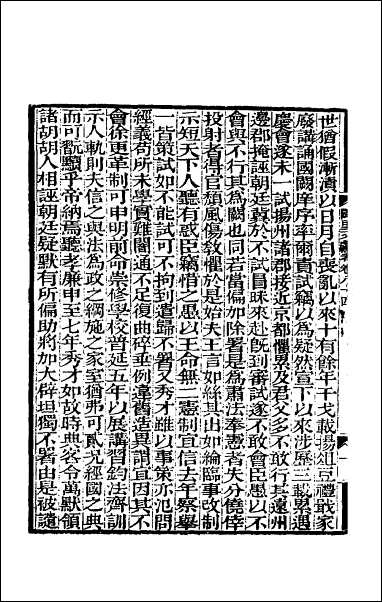 世猶假漸漬以日月自喪亂以來十有餘年干戈載揚俎豆禮戢家
廢講誦國闕庠序率爾責試竊以爲疑然宣下以來涉歷三載累遇
慶會遂未一試揚州諸郡接近京都懼累及君父多不敢行其遠州
邊郡掩誣朝廷冀於不試冒昧來赴旣到審試遂不敢會臣愚以不
會與不行其爲闕也同若當偏加除署是爲肅法奉憲者失分僥倖
投射者得官頹風傷敎懼於是始夫王言如絲其出如綸臨事改制
示短天下人聽有惑臣竊惜之愚以王命無二憲制宜信去年察舉
一皆策試如不能試可不拘到遣歸不署又秀才雖以事策亦氾問
經義苟所未學實難闇通不足復曲碎垂例違舊造異謂宜因其不
會徐更革制可申明前命崇修學校普延五年以展講習鈞法齊訓
示人軌則夫信之與法爲政之綱施之家室猶弗可貳況經國之典
而可翫黷乎帝納焉聽孝廉申至七年秀才如故時典客令萬默領
諸胡胡人相誣朝廷疑默有所偏助將加大辟坦獨不署由是被譴